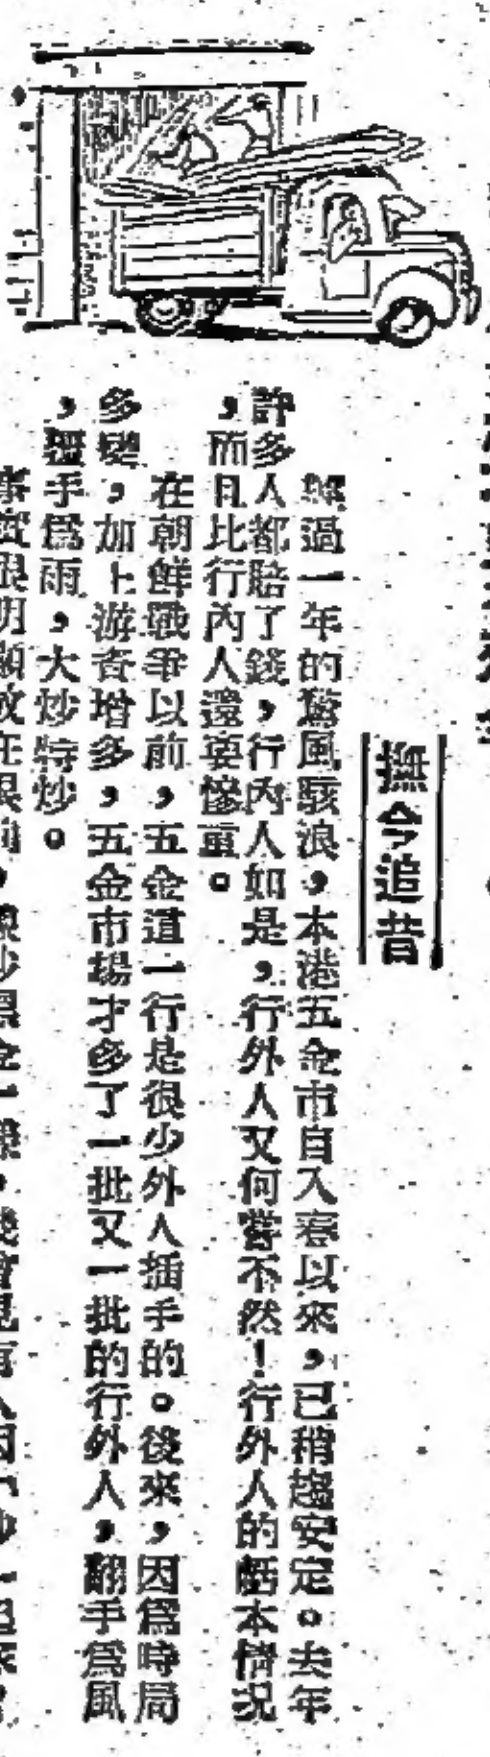 撫今追昔
經過一年的驚風駭浪，本港五金市自入春以來，已稍趨安定。去年
許多人都賠了錢，行內人如是，行外人又何嘗不然！行外人的虧本情況
，而且比行內人還要慘重。
在朝鮮戰爭以前，五金這一行是很少外人插手的。後來，因爲時局
多變，加上游資增多，五金市場才多了一批又一批的行外人，翻手爲風
，覆手爲雨，大炒特炒。
事實很明顯放在眼前，